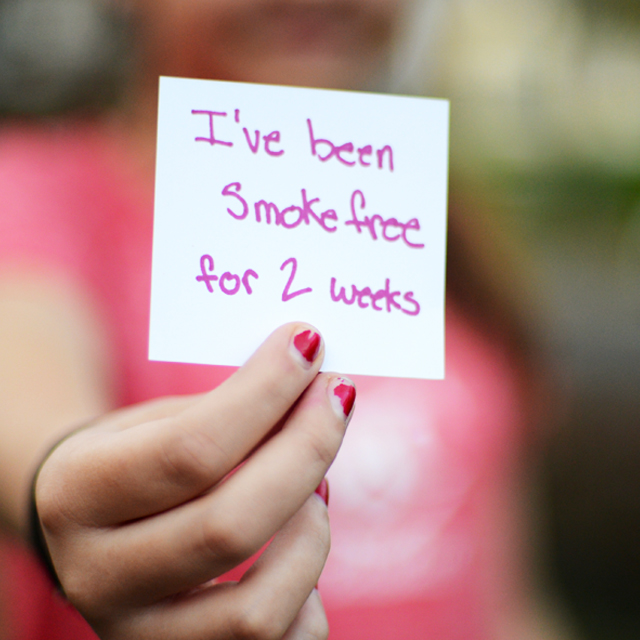 I've been
Smoke free
for 2 weeks